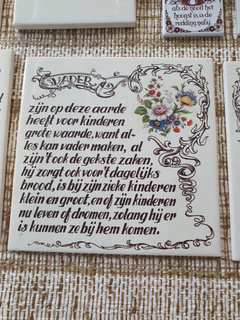 als de nood het
hoogst is, is de
redding nabij
VADER
zijn op deze aarde
heeft voor kinderen
grote waarde, want al-
les kan vader maken, al
zijn't ook de gekste zaken,
hij zorgt ook voor't dagelijks
brood, is bij zijn zieke kinderen
klein en groot, en of zijn kinderen
nu leven of dromen, zolang hij er
is kunnen ze bij hem komen.